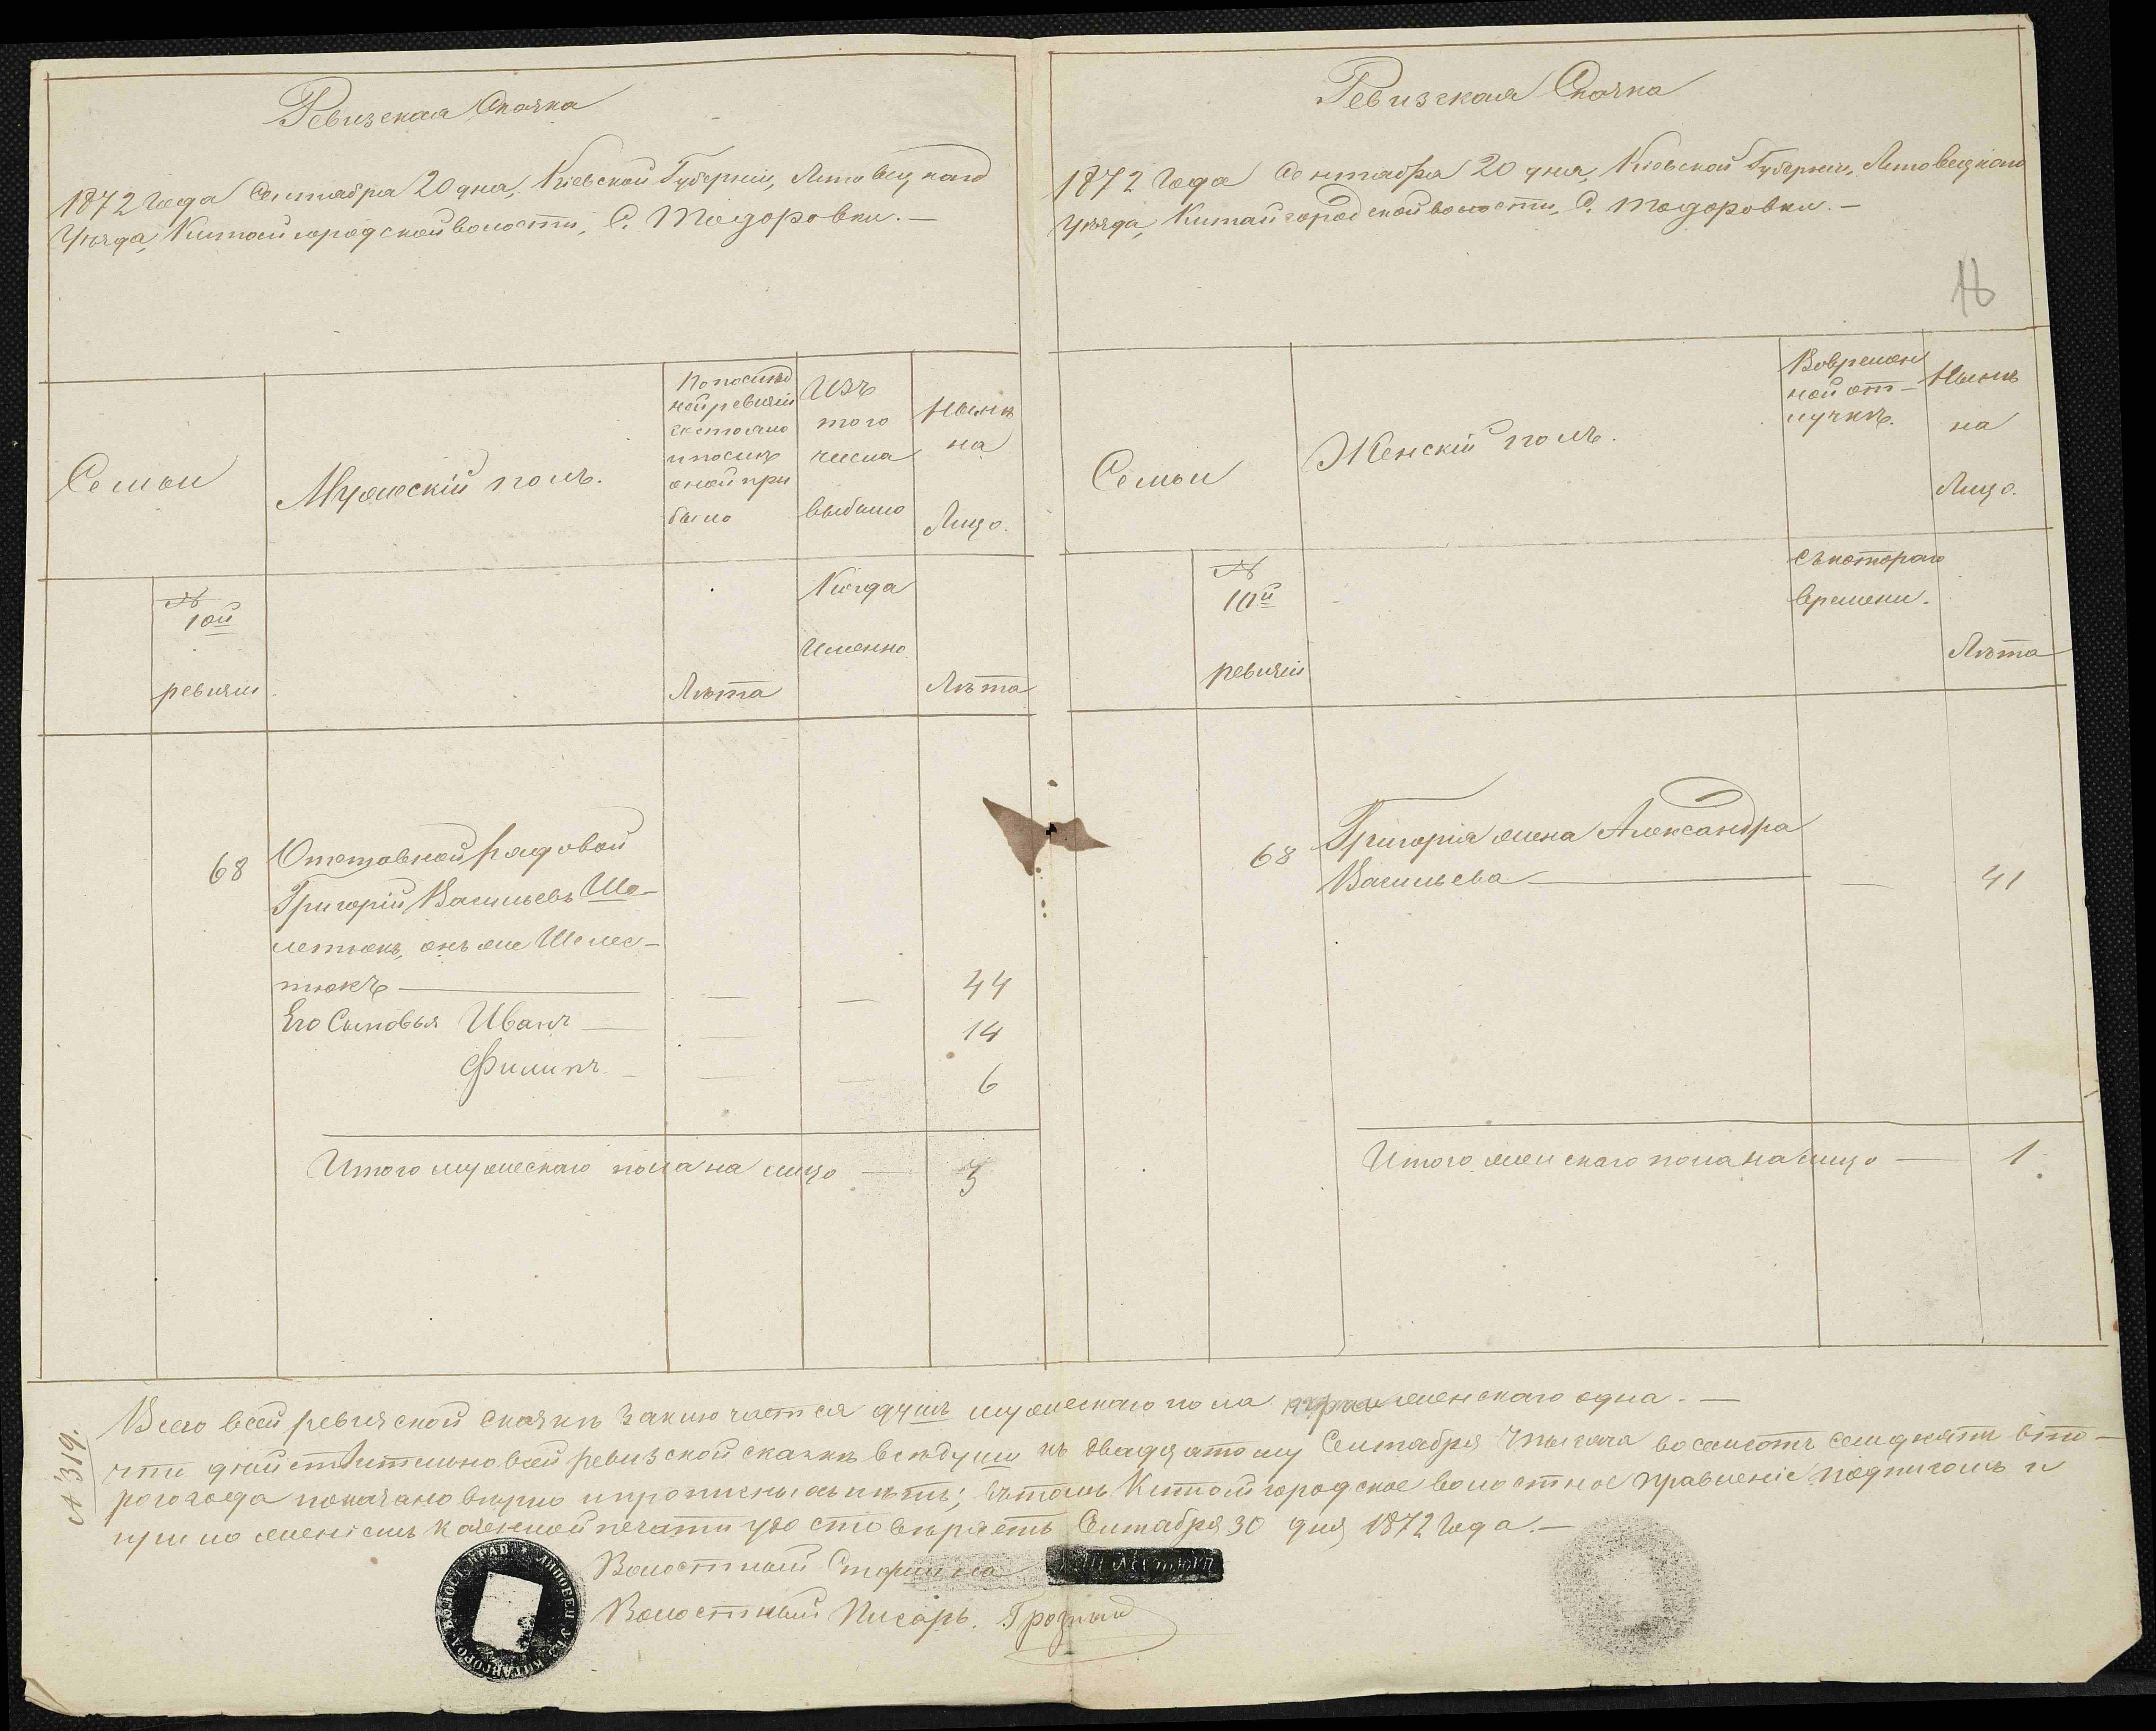 Ревизская Сказка
1872 Года Сентября 20 дня, Кіевской Губерніи, Липовецкаго
Уѣзда, Китайгородской волости, С. Тодоровки. —
Семьи
Мужескій полъ.
По послѣд
ней ревизіи
состояло
и послѣ
оной при
было
Изъ
того
числа
выбыло
Нынѣ
на
Лицо.
№
10ой
ревизіи
Когда
Именно
Лѣта
Лѣта
68
Отставной рядовой
Григорій Васильевъ Ше-
летюкъ, онъ же Шелес-
тюкъ — — — 44
Его Сыновья Иванъ — — 14
Филипъ — — — 6
Итого мужескаго пола на лицо — 3
Ревизская Сказка
1872 Года Сентября 20 дня, Кіевской Губерніи, Липовецкаго
Уѣзда, Китайгородской волости, С. Тодоровки. —
Семьи
Женскій полъ.
Во времен
ной от-
лучкѣ.
Нынѣ
на
Лицо.
№
10й
ревизіи
Съ котораго
времени.
Лѣта
68
Григорія жена Александра
Васильева — — 41
Итого женскаго пола на лицо — 1
Всего в сей ревизской сказкѣ заключается душъ мужескаго пола женскаго одна. —
что дѣйствительно в сей ревизской сказкѣ всѣ души къ двадцатому Сентября тысяча восемьсотъ семдесятъ вто-
рого года показано вѣрно и прописныхъ нѣтъ; въ томъ Китайгородское волостное правленіе подписомъ и
приложеніемъ казенной печати удостовѣряетъ Сентября 30 дня 1872 Года. —
№ 319.
Волостный Старшина Шелестюкъ
Волостный Писарь. Грозный
ЛИПОВЕЦ УѢЗ КИТАЙГОРОД ВОЛОСТ ПРАВ